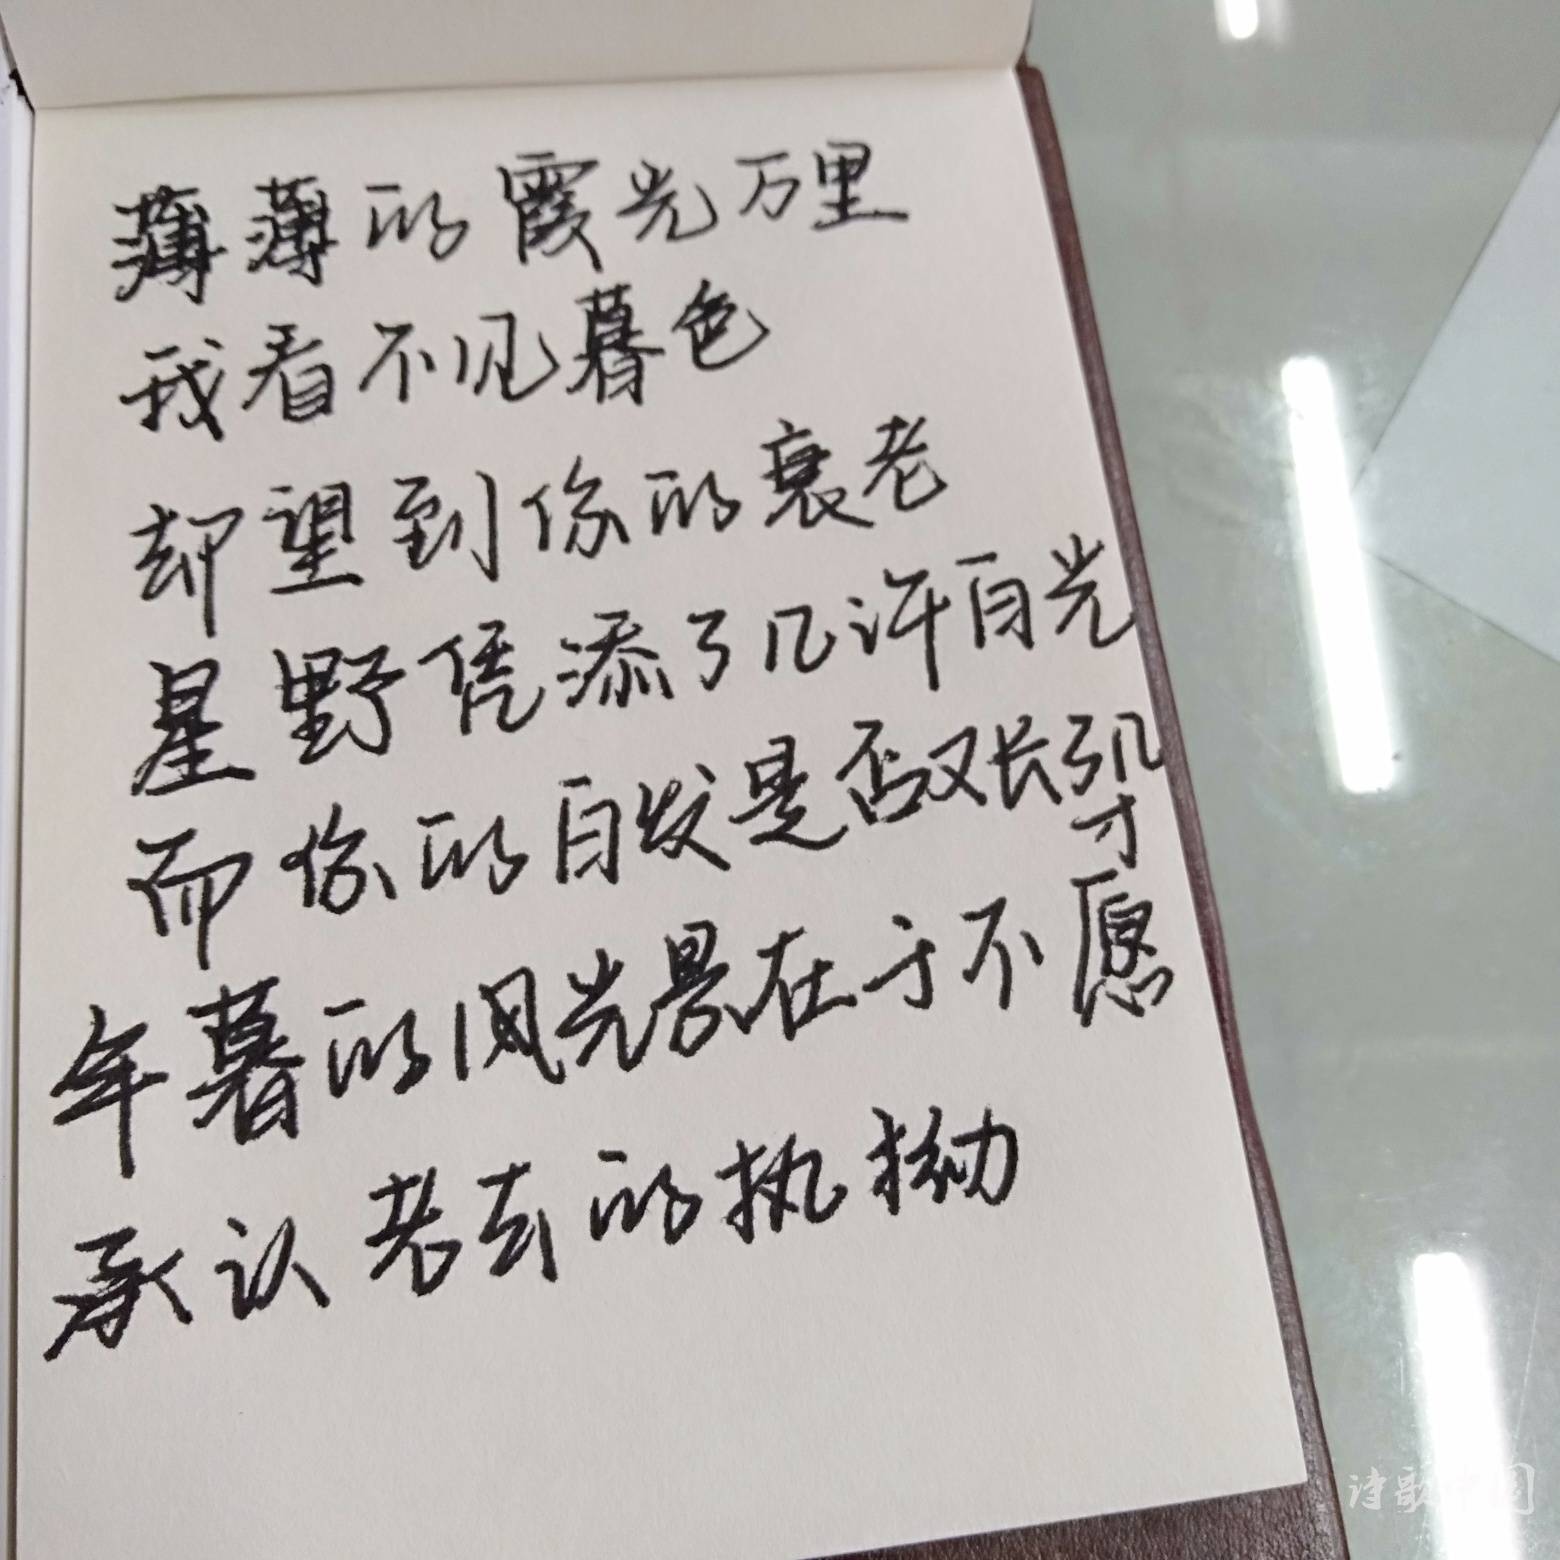 薄薄的霞光万里
我看不见暮色
却望到你的衰老
星野凭添了几许白光
而你的白发是否又长了几寸
年暮的风光景在于不愿
承认老去的执拗
诗歌中国